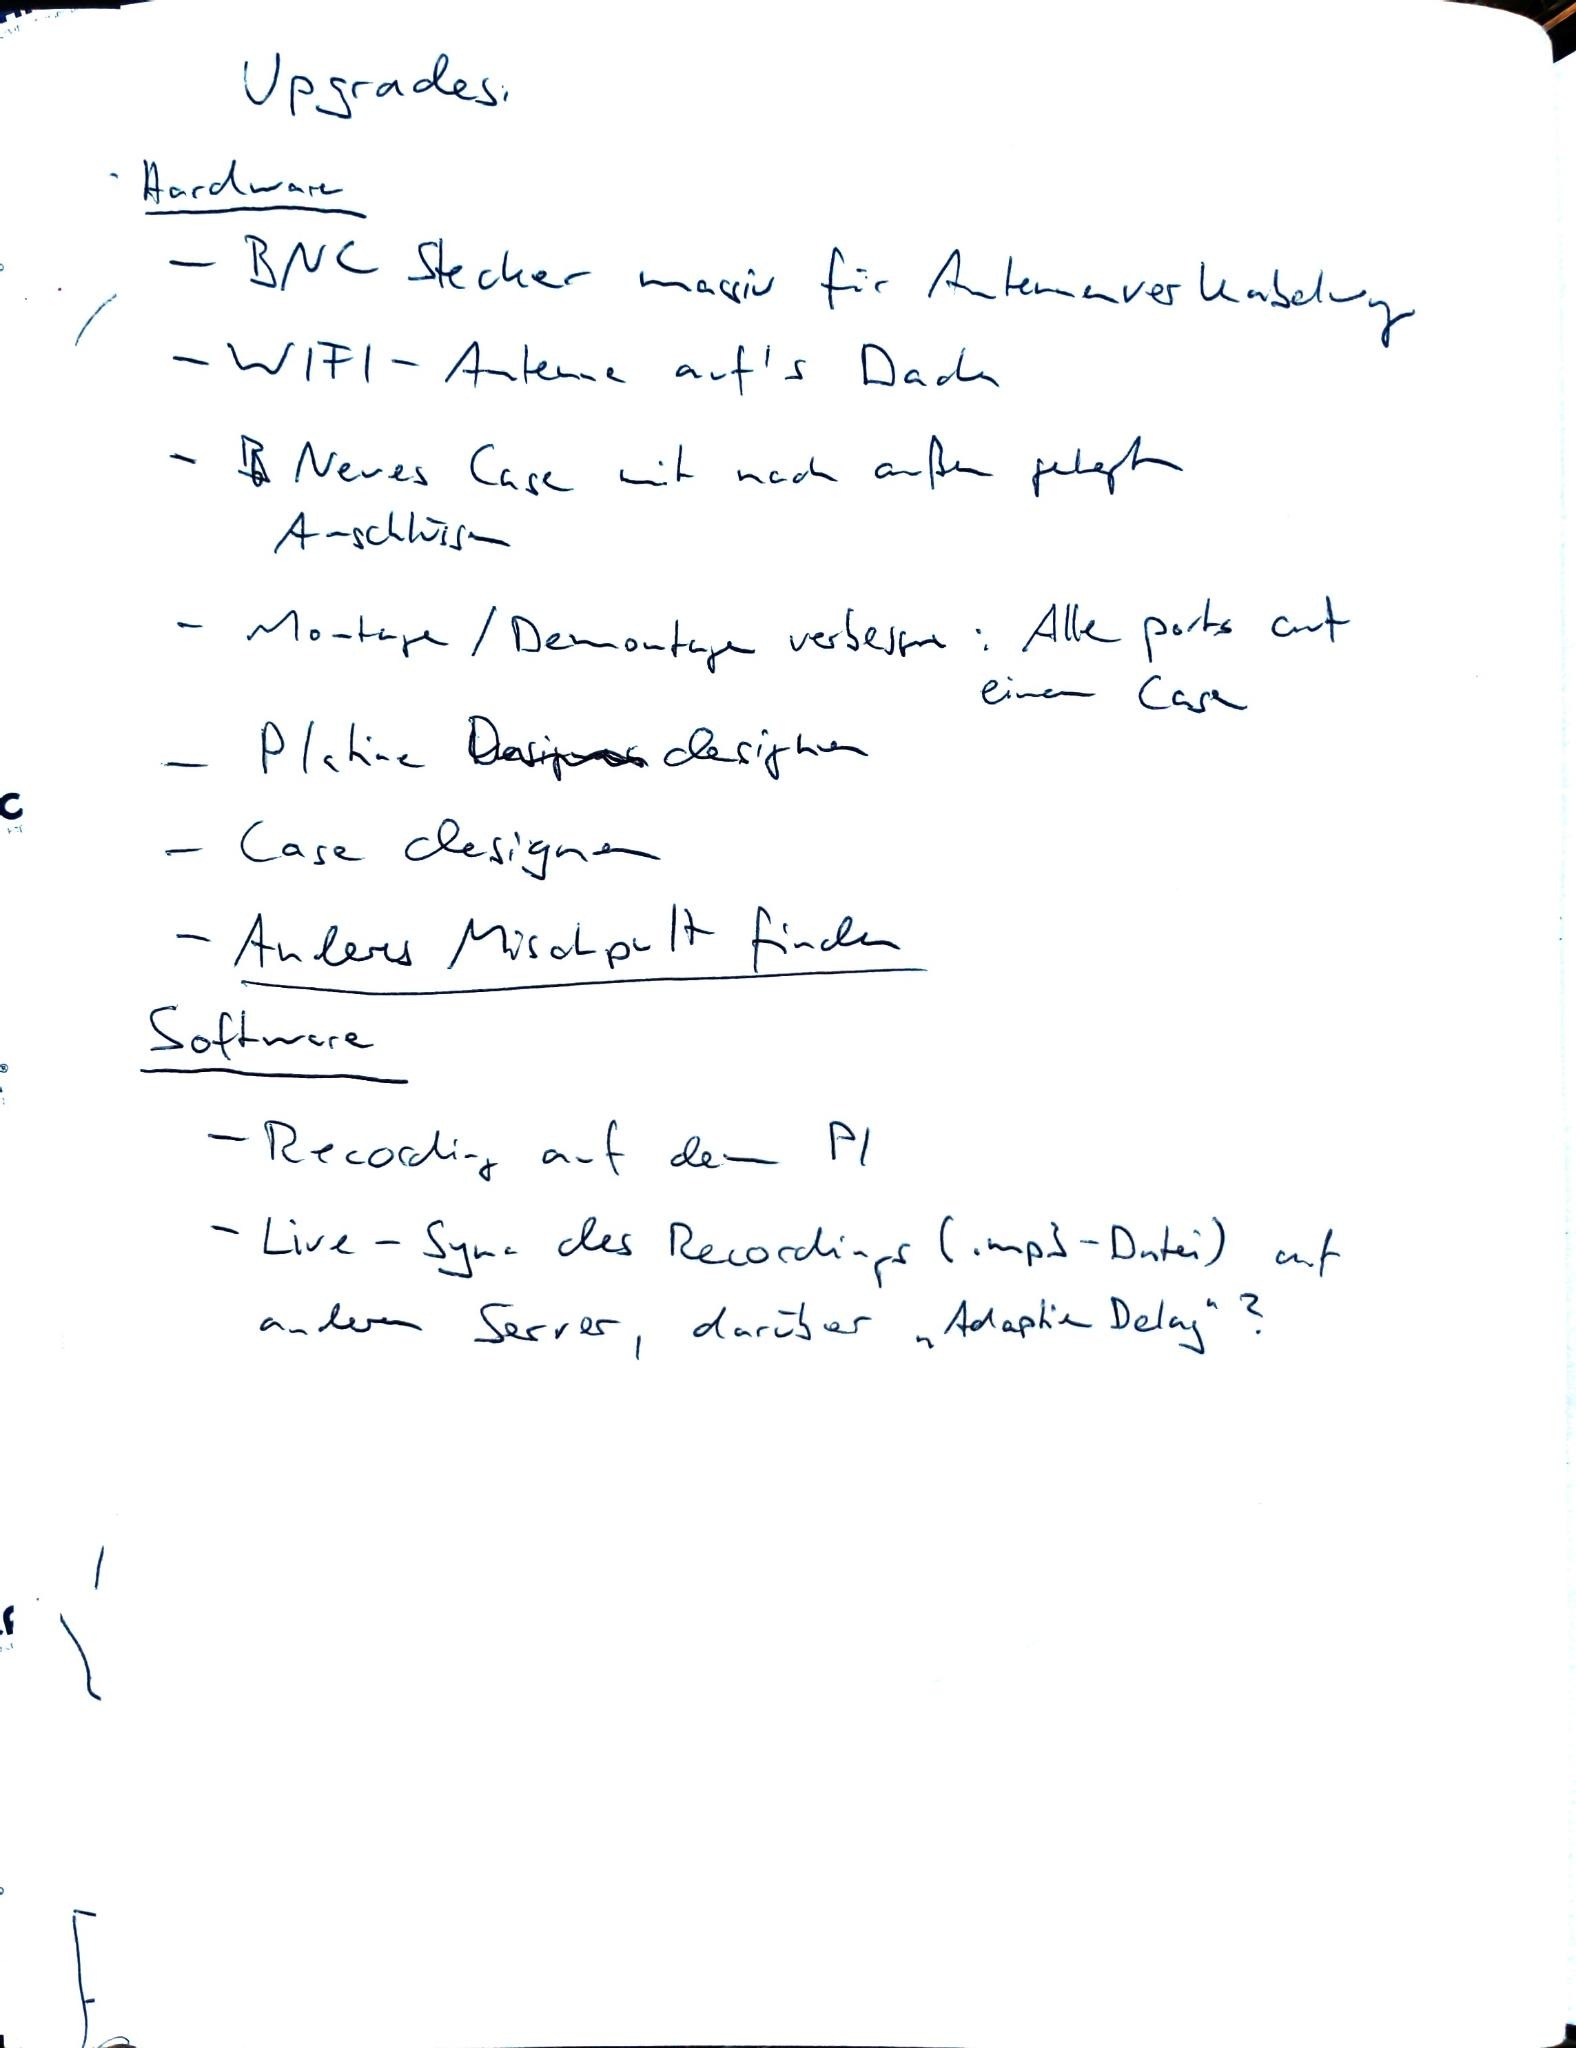 Upgrades:
Hardware
- BNC Stecker massiv für Antennenverkabelung
- WIFI - Antenne auf's Dach
- Neues Case mit nach außen gelegten
Anschlüssen
- Montage / Demontage verbessern : Alle ports auf
einem Case
- Platine designen
- Case designen
- Anderes Mischpult finden
Software
- Recording auf dem PI
- Live - Sync des Recordings (.mp3-Datei) auf
anderen Server, darüber „Adaptive Delay“ ?